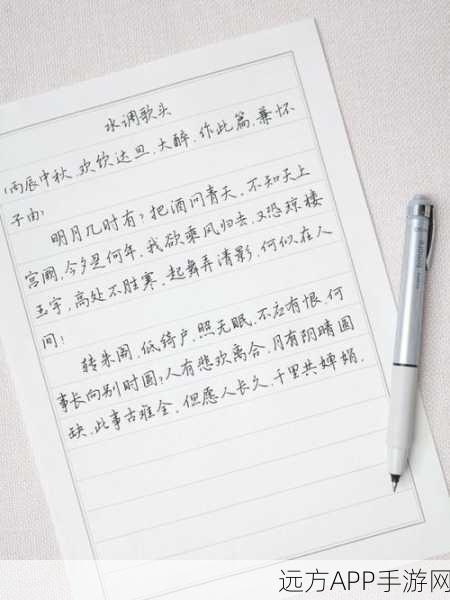 水调歌头
(丙辰中秋,欢饮达旦,大醉,作此篇,兼怀
子由)
明月几时有?把酒问青天,不知天上
宫阙,今夕是何年,我欲乘风归去,又恐琼楼
玉宇,高处不胜寒,起舞弄清影,何似在人
间!
转朱阁,低绮户,照无眠,不应有恨,何
事长向别时圆?人有悲欢离合,月有阴晴圆
缺,此事古难全,但愿人长久,千里共婵娟.
远方APP手游网